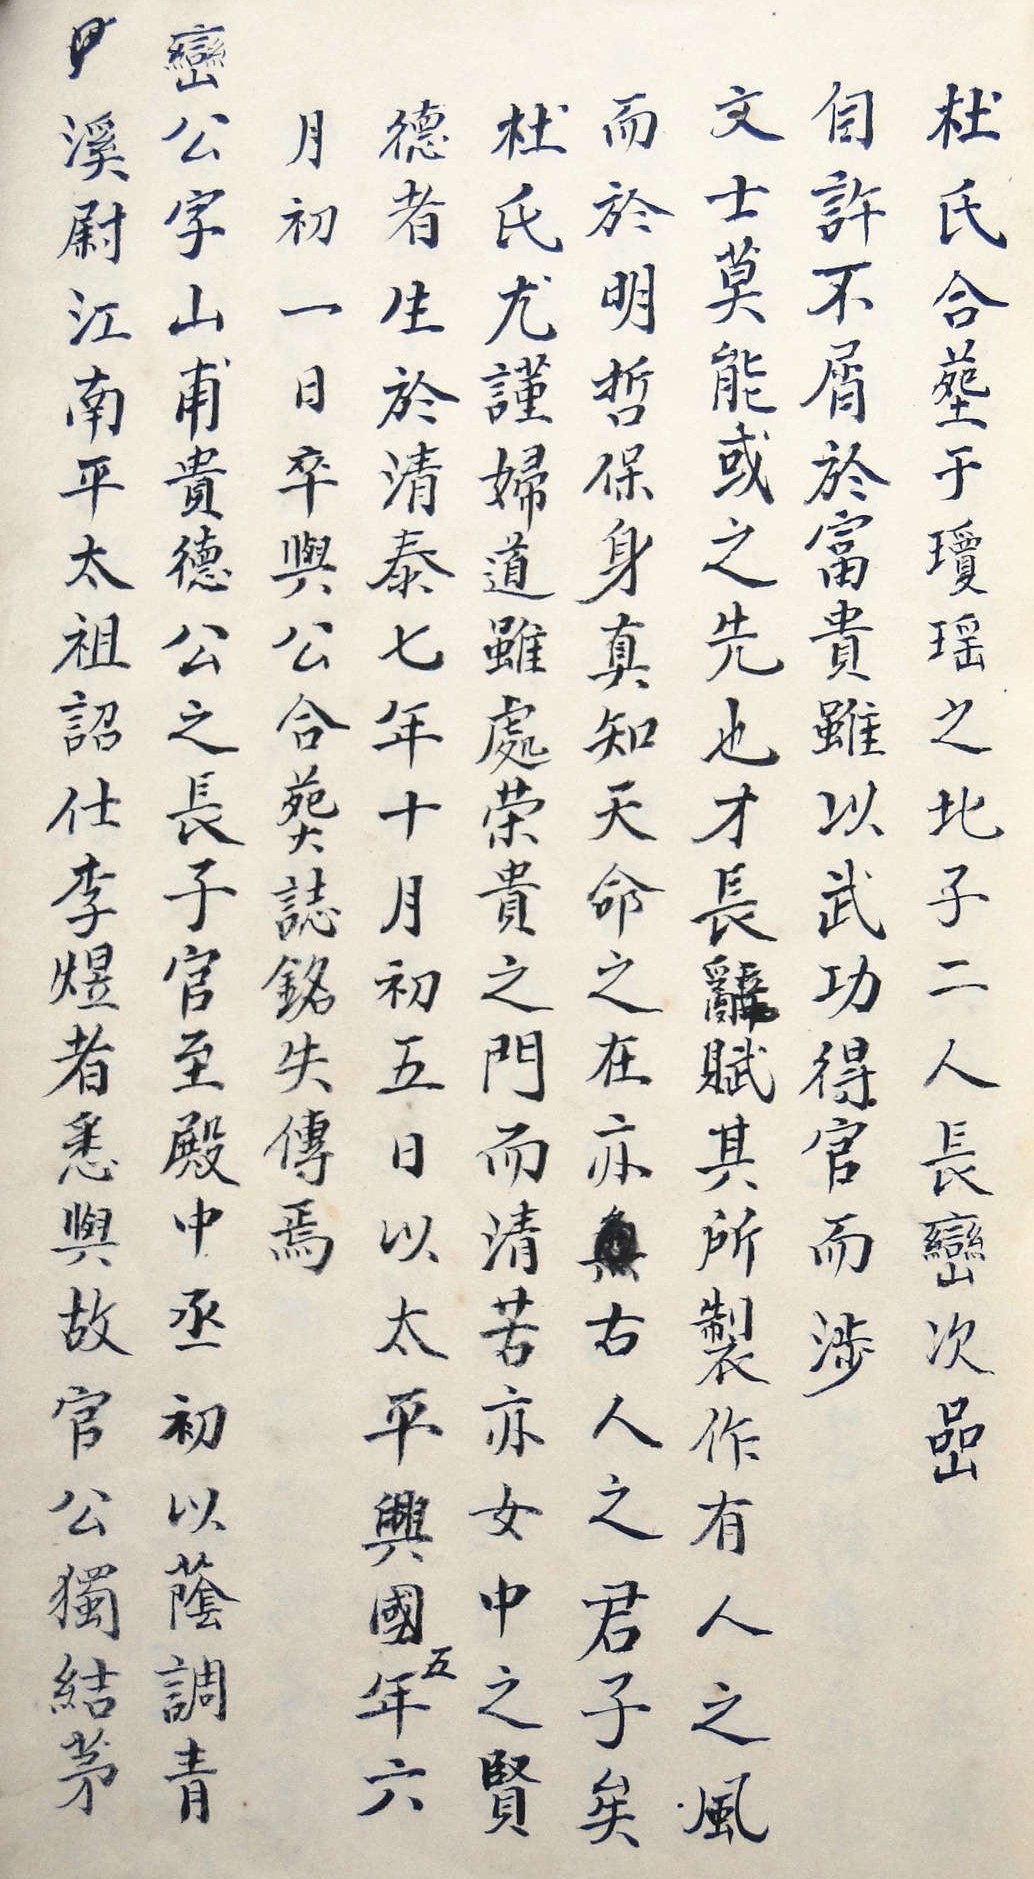 杜氏合塟于瓊瑶之北子二人長巒次嵒
自許不屑於富貴雖以武功得官而涉
文士莫能或之先也才長辭賦其所製作有人之風
而於明哲保身真知天命之在亦無右人之君子矣
杜氏尤謹婦道雖處荣貴之門而清苦亦女中之賢
德者生於清泰七年十月初五日以太平興國五年六
月初一日卒與公合葬誌銘失傳焉
巒公字山甫貴德公之長子官至殿中丞初以蔭調青
溪尉江南平太祖詔仕李煜者悉與故官公獨结茅